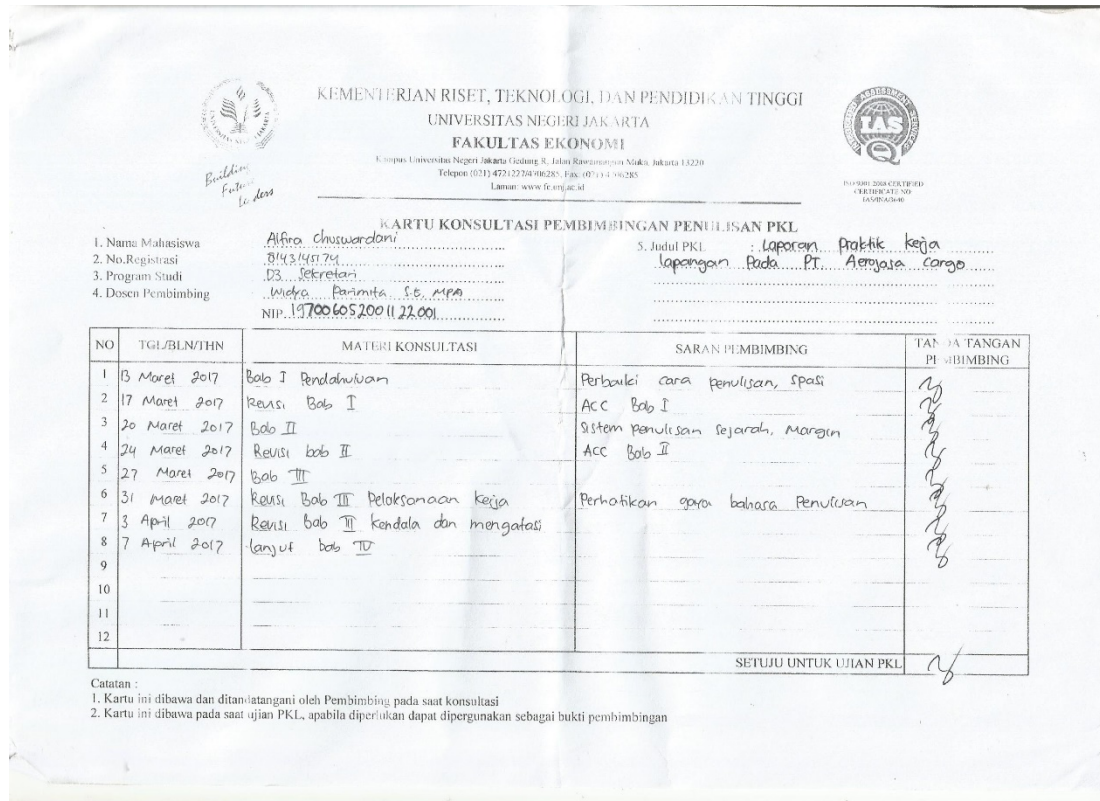 KEMENTERIAN RISET, TEKNOLOGI, DAN PENDIDIKAN TINGGI
UNIVERSITAS NEGERI JAKARTA
FAKULTAS EKONOMI
Kampus Universitas Negeri Jakarta Gedung R, Jalan Rawamangun Muka, Jakarta 13220
Telepon (021) 4721227/4706285, Fax: (021) 4706285
Laman: www.fe.unj.ac.id
Building
Future
Leaders
IAS
ISO 9001:2008 CERTIFIED
CERTIFICATE NO
IAS/INA/3640
KARTU KONSULTASI PEMBIMBINGAN PENULISAN PKL
1. Nama Mahasiswa Alfira Chuswardani
2. No.Registrasi 8143145174
3. Program Studi D3 Sekretari
4. Dosen Pembimbing Widya Parimita S.E, MPA
NIP. 197006052001122001
5. Judul PKL : Laporan Praktik Kerja
Lapangan Pada PT. Aerojasa Cargo
NO TGL/BLN/THN MATERI KONSULTASI SARAN PEMBIMBING TANDA TANGAN PEMBIMBING
1 13 Maret 2017 Bab I Pendahuluan Perbaiki cara penulisan, spasi
2 17 Maret 2017 Revisi Bab I ACC Bab I
3 20 Maret 2017 Bab II Sistem penulisan sejarah, Margin
4 24 Maret 2017 Revisi bab II ACC Bab II
5 27 Maret 2017 Bab III
6 31 Maret 2017 Revisi Bab III Pelaksanaan kerja Perhatikan gaya bahasa Penulisan
7 3 April 2017 Revisi Bab III kendala dan mengatasi
8 7 April 2017 lanjut bab IV
9
10
11
12
SETUJU UNTUK UJIAN PKL
Catatan :
1. Kartu ini dibawa dan ditandatangani oleh Pembimbing pada saat konsultasi
2. Kartu ini dibawa pada saat ujian PKL, apabila diperlukan dapat dipergunakan sebagai bukti pembimbingan